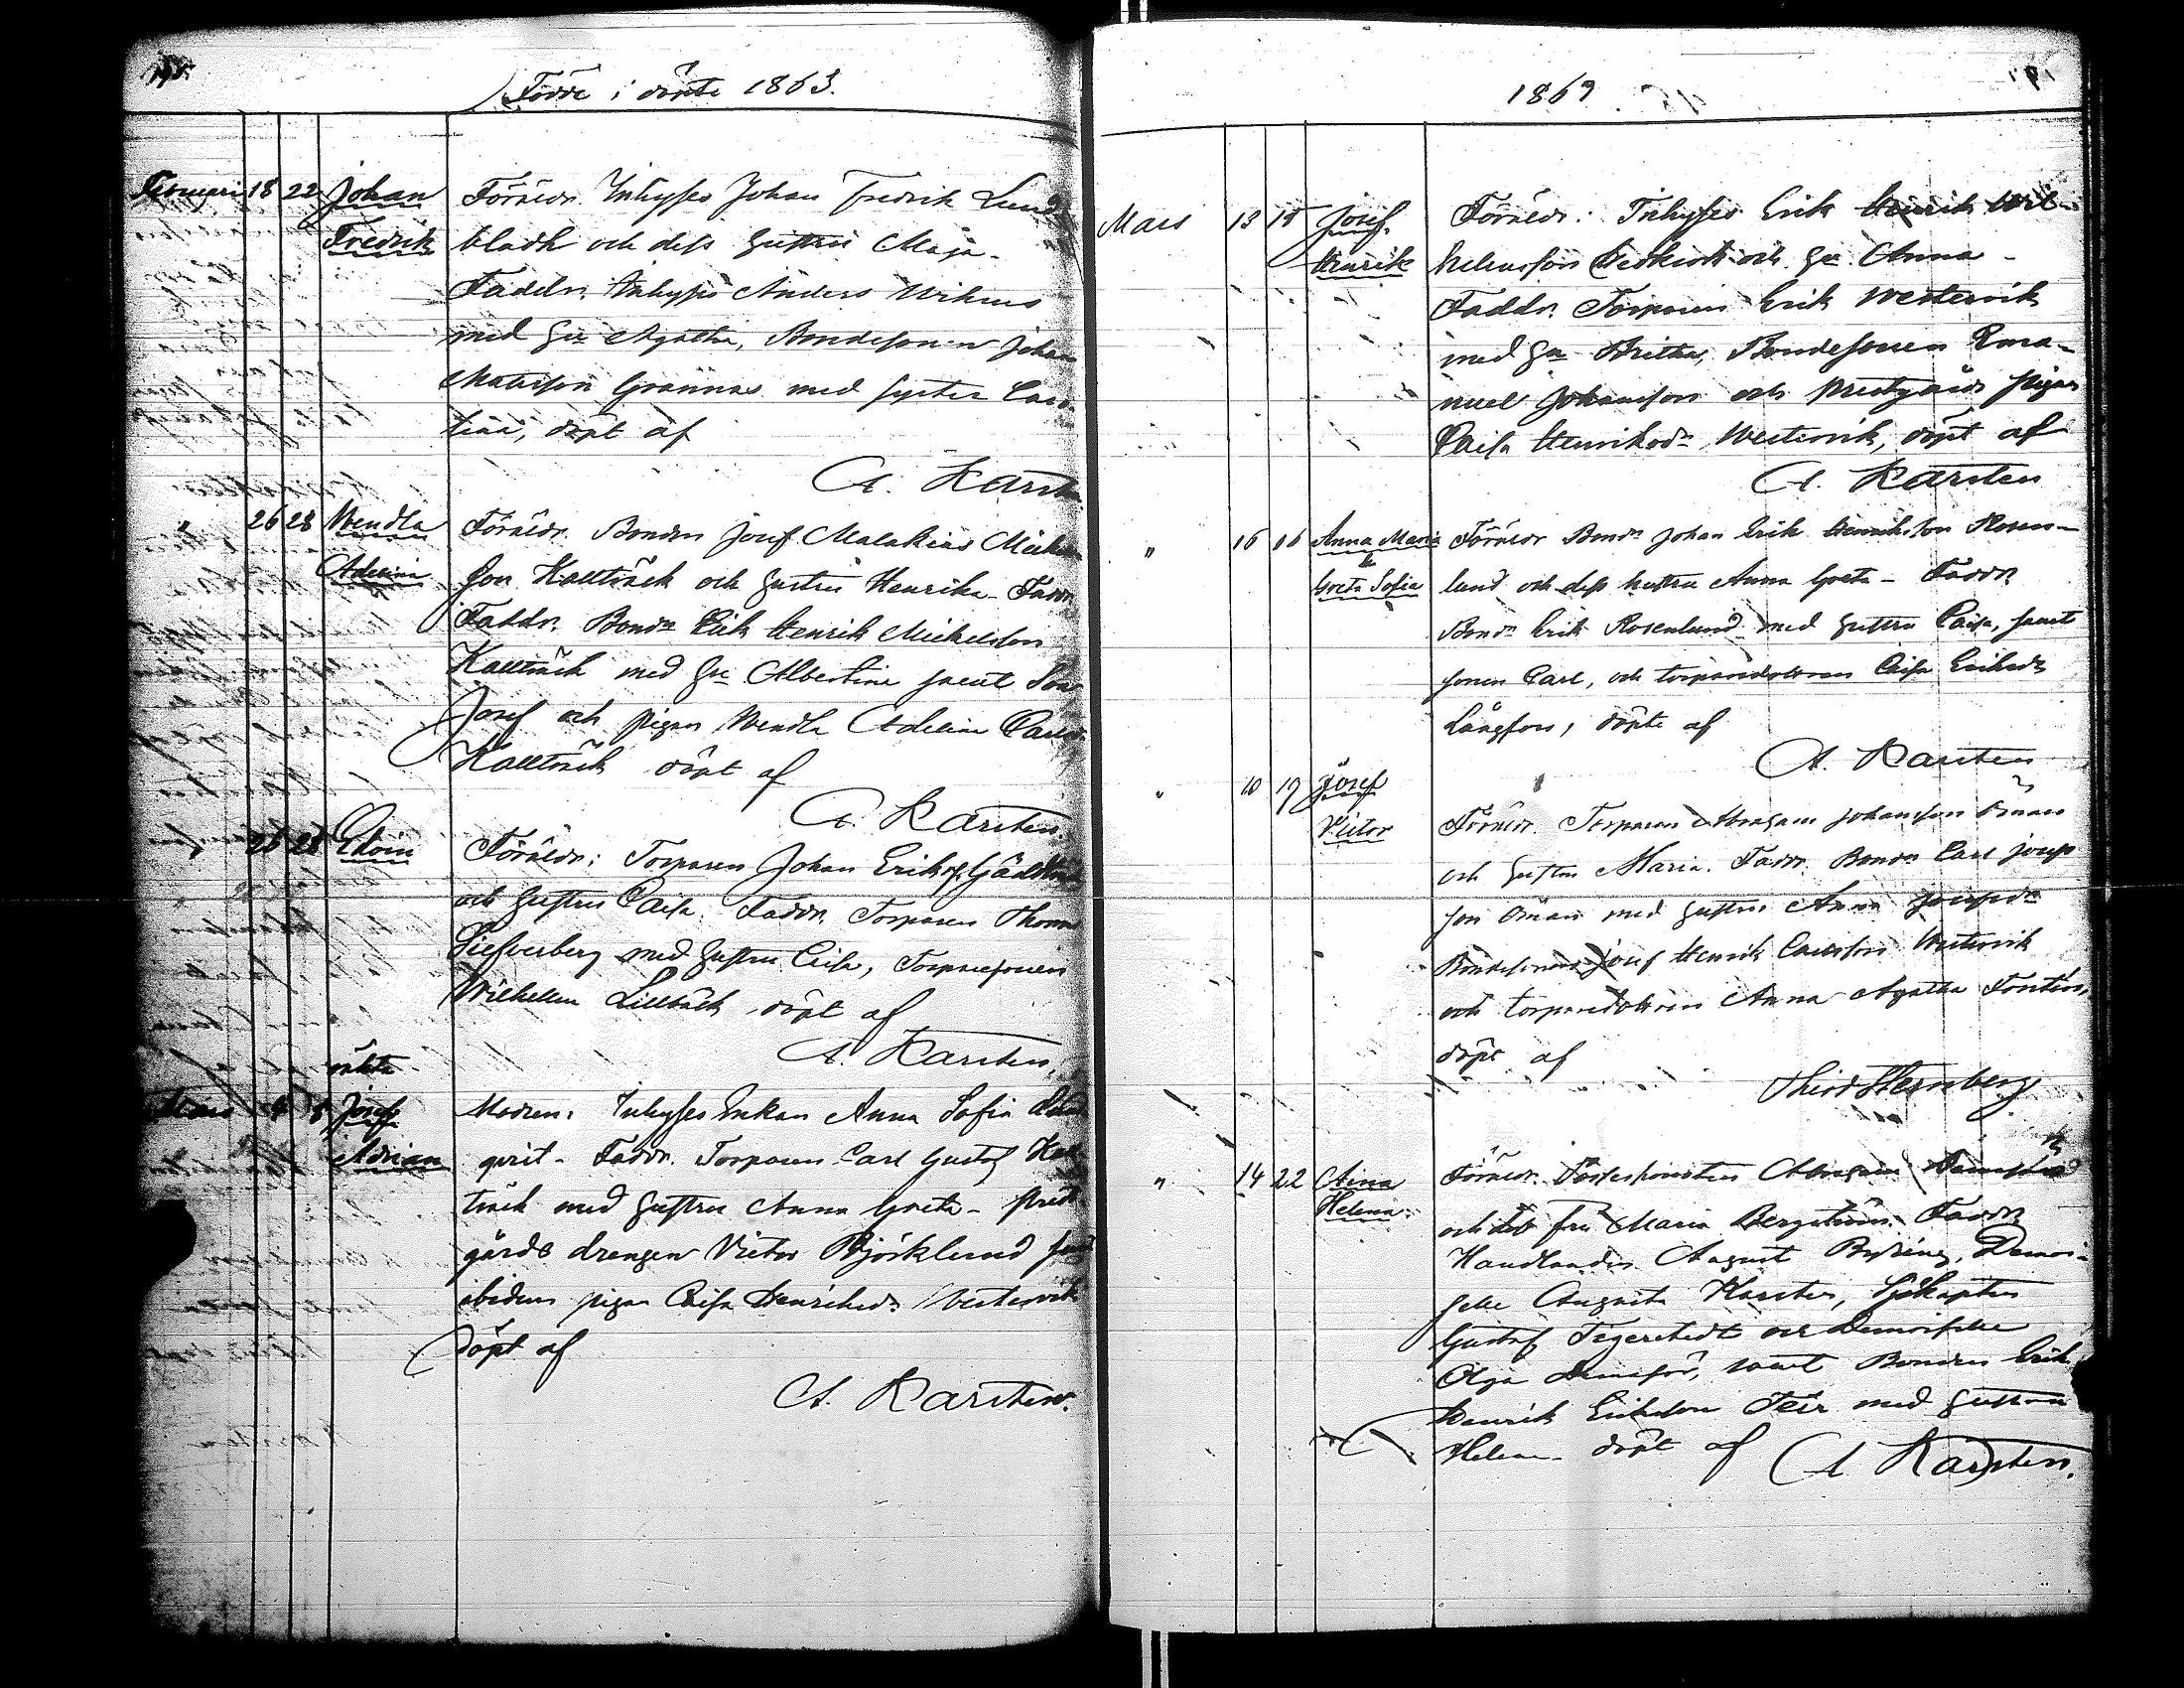 Födde i döpte 1863.
Februari 18 22 Johan Föräldr. Inhyses Johan Fredrik Lund
Fredrik bladh och dess hustru Maja.
Faddr. Inhyses Anders
med hu Agatha, Bondesonen Johan
Mattsson Grannas med syster Caro
lina, döpt af
A. Karsten
" 26 28 Wendla Föräldr. Bonden Josef Malakias Mickels
Adelina son Kallträsk och hustru Henrika. Fadd
Faddr. Bondn Erik Henrik Mickelsson
Kallträsk med hu Albertina samt Son
Josef och pigan Wendla Adelina Carlsd
Kallträsk döpt af
A. Karsten.
26 28 Edvin Föräldr: Torparen Johan Eriks.
och hustru Caisa. Faddr. Torparen Thomas
Silfverberg med hustru Caisa, Torparesonen
Wilhelm Lillbäck döpt af
A. Karsten,
oäkta
Mars 4 8 Josef Modren: Inhyses Enkan Anna Sofia
Adrian qvist. Faddr. Torparen Carl Gustaf Kall
träsk med hustru Anna Greta. Prest
gårds drengen Victor Björklund
ibidem pigan Caisa Henriksdr Westervik
döpt af
A. Karsten.
1869
Mars 13 15 Josef Föräldr: Inhyses Erik Henrik Wil
Henrik helmsson och hu Anna
Faddr. Torparen Erik Westervik
med hu Britha, Bondesonen Ema-
nuel Johansson och prestgårds pigan
Caisa Henriksdr Westervik, döpt af
A. Karsten
" 16 16 Anna Maria Föräldr Bondn Johan Erik Henriksson Rosen-
&
Greta Sofia lund och dess hustru Anna Greta - Faddr
Bondn Erik Rosenlund med hustru Caisa, samt
sonen Carl, och torparedottren Caisa Eriksdr
Långfors, döpte af
A. Karsten
" 10 19 Josef
Victor Föräldr. Torparen Abraham Johansson Öman
och hustru Maria. Faddr. Bondn Carl Josefs
son Öman med hustru Anna Josefsdr
Bondesonen Josef Henrik Carlsson Westervik
och torparedottren Anna Agatha
döpt af
Theod Sternberg
" 14 22 Aina Föräldr. Abraham
Helena. och fru Maria Bergström. Faddr
Handlanden August Demoi-
selle Augusta Karsten, Sjökapten
Gustaf Tegerstedt och Demoiselle
Olga samt Bonden Erik
Henrik Eriksson Teir med hustru
Helena. döpt af A Karsten.